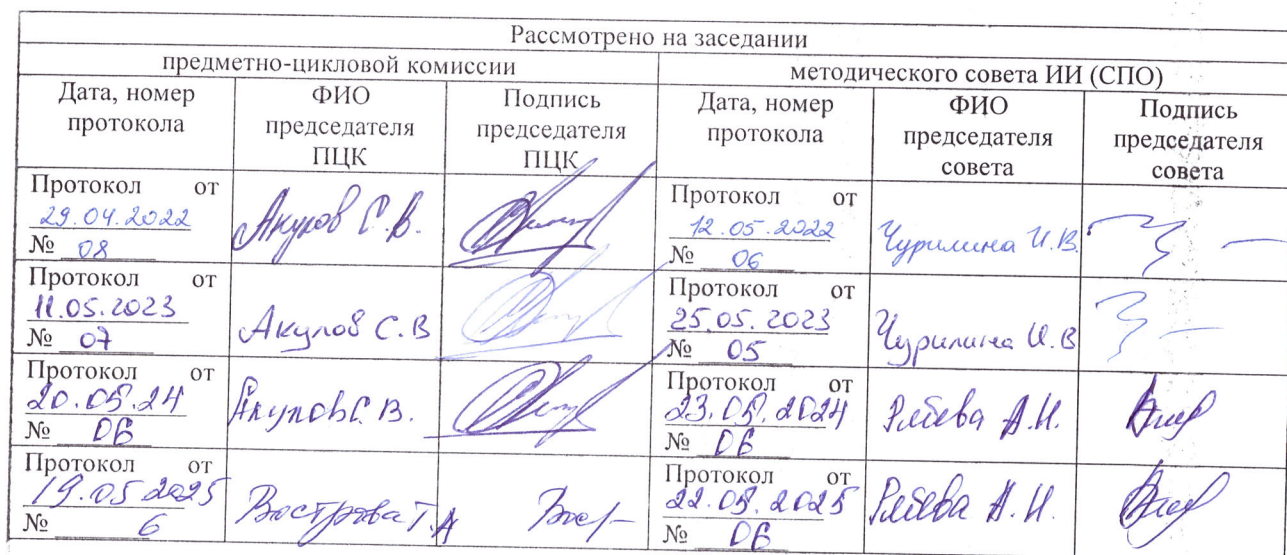 Рассмотрено на заседании
предметно-цикловой комиссии
методического совета ИИ (СПО)
Дата, номер протокола
ФИО председателя ПЦК
Подпись председателя ПЦК
Дата, номер протокола
ФИО председателя совета
Подпись председателя совета
Протокол от
29.04.2022
№ 08
Акулов С.В.
Протокол от
12.05.2022
№ 06
Чурилина И.В.
Протокол от
11.05.2023
№ 07
Акулов С.В
Протокол от
25.05.2023
№ 05
Чурилина И.В
Протокол от
20.05.24
№ 06
Акулов С.В.
Протокол от
23.05.2024
№ 06
А.Н.
Протокол от
19.05.2025
№ 6
Вострова Т.А
Протокол от
22.05.2025
№ 06
А.Н.